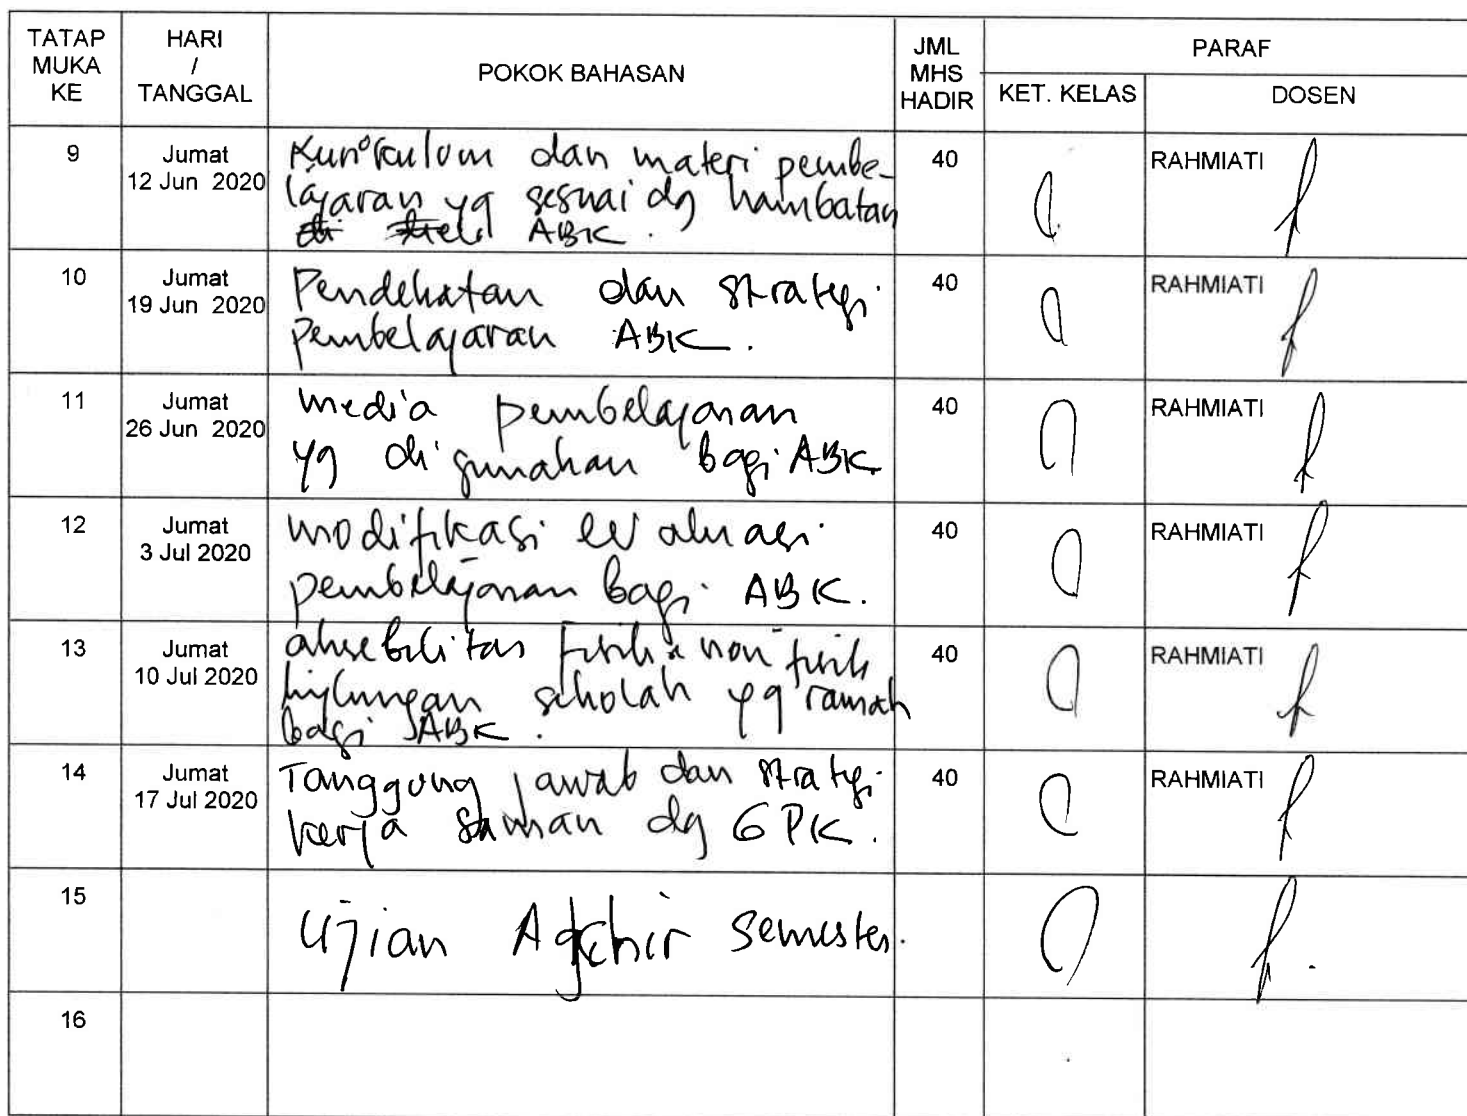 TATAP MUKA KE
HARI / TANGGAL
POKOK BAHASAN
JML MHS HADIR
PARAF
KET. KELAS
DOSEN
9
Jumat
12 Jun 2020
Kurikulum dan materi pembe-
lajaran yg sesuai dg hambatan
ABK.
40
RAHMIATI
10
Jumat
19 Jun 2020
Pendekatan dan strategi
pembelajaran ABK.
40
RAHMIATI
11
Jumat
26 Jun 2020
media pembelajaran
yg digunakan bagi ABK
40
RAHMIATI
12
Jumat
3 Jul 2020
modifikasi evaluasi
pembelajaran bagi ABK.
40
RAHMIATI
13
Jumat
10 Jul 2020
aksebilitas fisik & non fisik
lingkungan sekolah yg ramah
bagi ABK.
40
RAHMIATI
14
Jumat
17 Jul 2020
Tanggung jawab dan strategi
kerja saman dg GPK.
40
RAHMIATI
15
Ujian Akhir Semester.
16